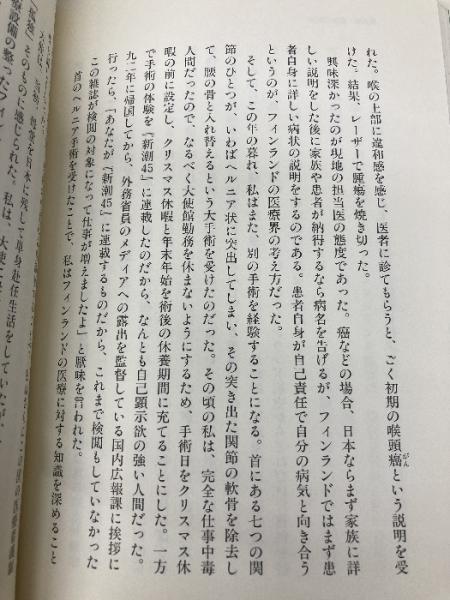 れた。喉の上部に違和感を感じ、医者に診てもらうと、ごく初期の喉頭癌という説明を受
けた。結果、レーザーで腫瘍を焼き切った。
興味深かったのが現地の担当医の態度であった。癌などの場合、日本ならまず家族に詳
しい説明をした後に家族や患者が納得するなら病名を告げるが、フィンランドではまず患
者自身に詳しい病状の説明をするのである。患者自身が自己責任で自分の病気と向き合う
というのが、フィンランドの医療界の考え方だった。
そして、この年の暮れ、私はまた、別の手術を経験することになる。首にある七つの関
節のひとつが、いわばヘルニア状に突出してしまい、その突き出た関節の軟骨を除去し
て、腰の骨と入れ替えるという大手術を受けたのだった。その頃の私は、完全な仕事中毒
人間だったので、なるべく大使館勤務を休まないようにするため、手術日をクリスマス休
暇の前に設定し、クリスマス休暇と年末年始を術後の休養期間に充てることにした。一方
で手術の体験を『新潮45』に連載したのだから、なんとも自己顕示欲の強い人間だった。
九二年に帰国してから、外務省員のメディアへの露出を監督している国内広報課に挨拶に
行ったら、「あなたが『新潮45』に連載するものだから、これまで検閲もしていなかった
この雑誌が検閲の対象になって仕事が増えましたよ」と厭味を言われた。
首のヘルニア手術を受けたことで、私はフィンランドの医療に対する知識を深めること
「孤独」そのものに感じられた。私は、大使に
を日本に残して単身赴任生活をしていたが、
療設備の整ったフィン